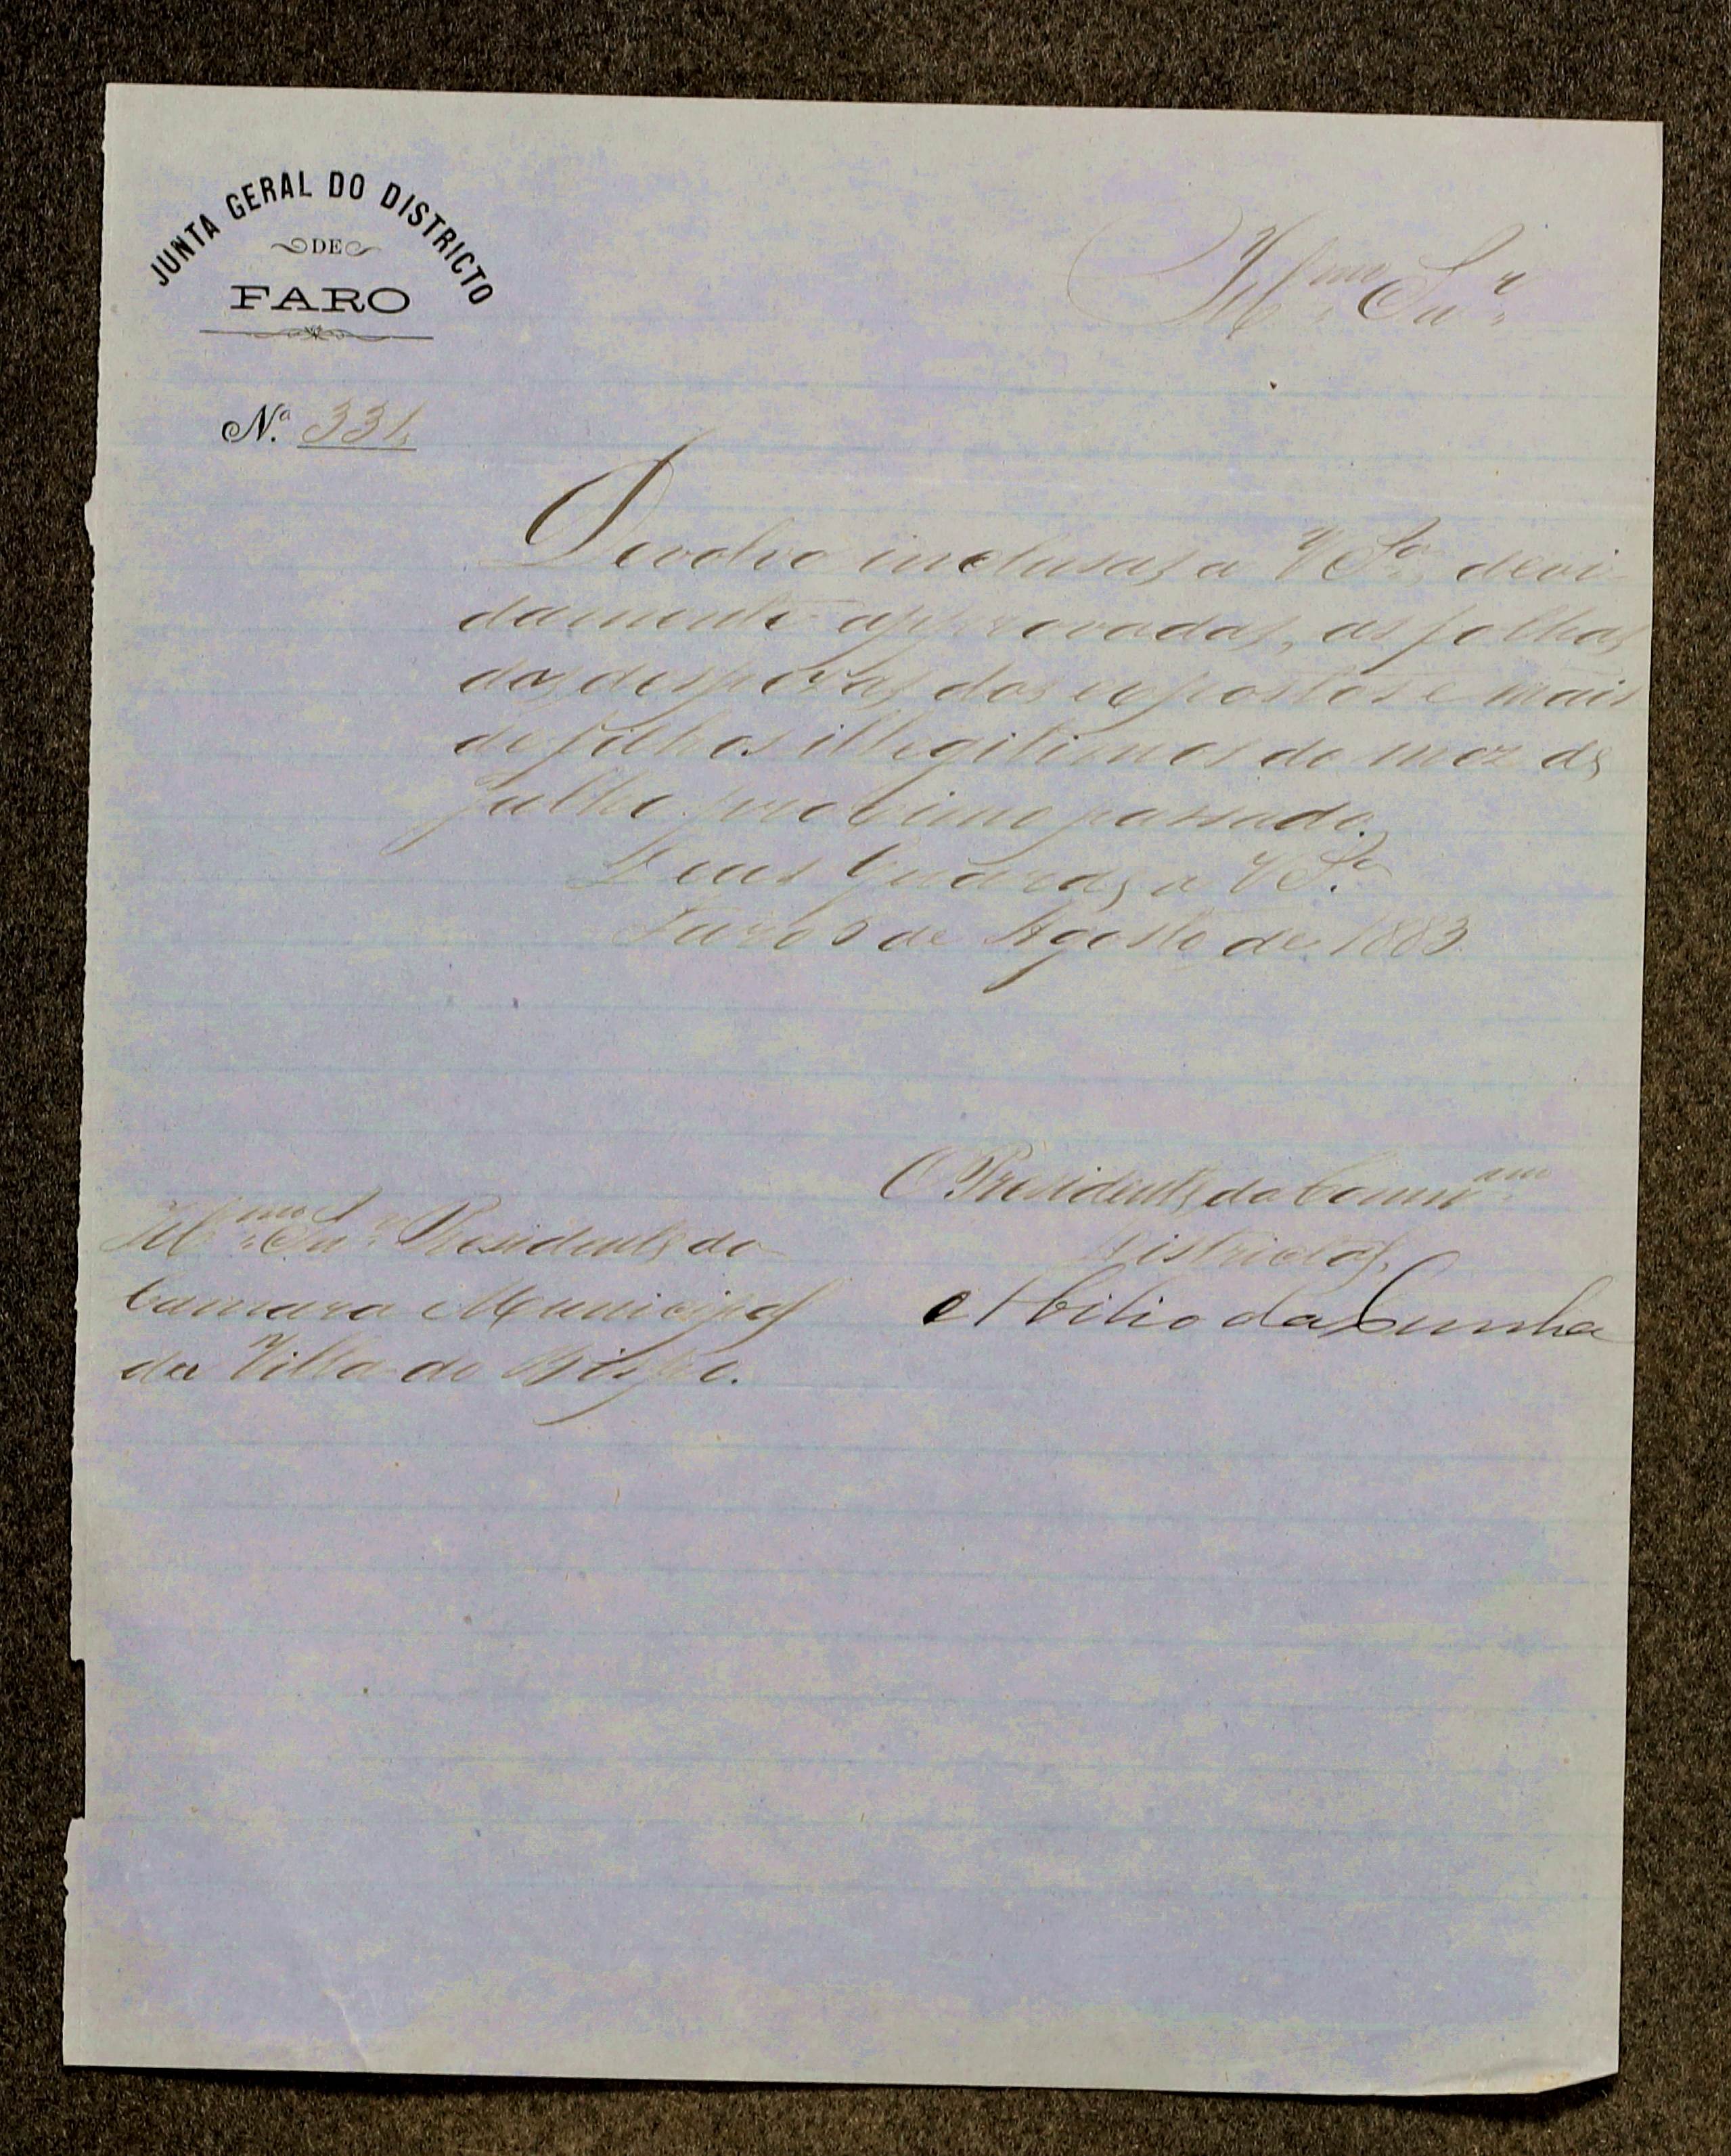 JUNTA GERAL DO DISTRICTO
DE
FARO
Ill.mo Sn.r
N.º 331
Devolvo inclusas a V S.ª, devi-
damente approvadas, as folhas
das despezas dos expostos e mais
de filhos illegitimos do mez de
Julho proximo passado.
Deus Guarde a V S.ª
Faro de Agosto de 1883.
O Presidente da Comm.am
Districtal,
Ill.mo Sn.r Presidente da
Camara Municipal
da Villa do Bispo.
Abilio da Cunha